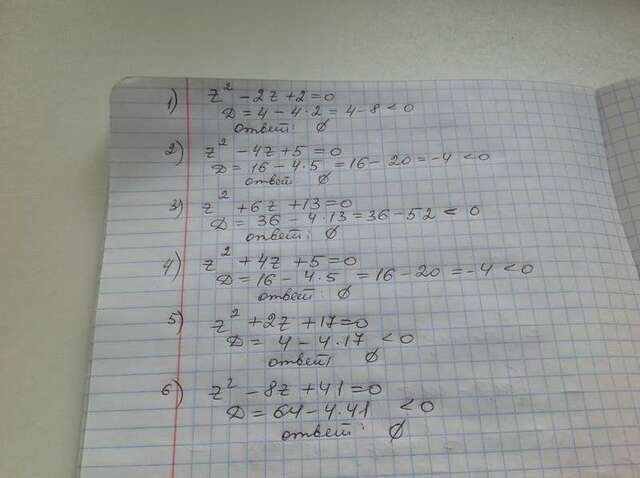 1) z² - 2z + 2 = 0
D = 4 - 4·2 = 4 - 8 < 0
ответ: ∅
2) z² - 4z + 5 = 0
D = 16 - 4·5 = 16 - 20 = -4 < 0
ответ: ∅
3) z² + 6z + 13 = 0
D = 36 - 4·13 = 36 - 52 < 0
ответ: ∅
4) z² + 4z + 5 = 0
D = 16 - 4·5 = 16 - 20 = -4 < 0
ответ: ∅
5) z² + 2z + 17 = 0
D = 4 - 4·17 < 0
ответ: ∅
6) z² - 8z + 41 = 0
D = 64 - 4·41 < 0
ответ: ∅